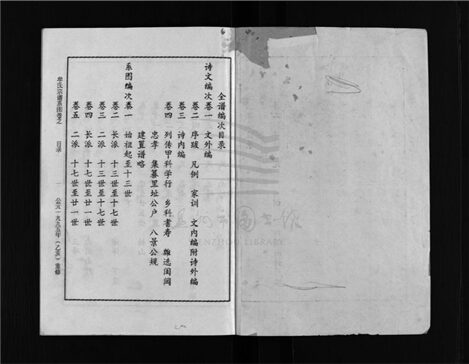 全谱编次目录
诗文编次卷一 文外编
卷二 序跋 凡例 家训 文内编附诗外编
卷三 诗内编
卷四 列传甲科学行 乡科耆寿 雜选闺阃
忠孝 集募里址公户 八景公规
建置谱略
系图编次卷一 始祖起至十三世
卷二 长派 十三世至十七世
卷三 二派 十三世至十七世
卷四 长派 十七世至廿一世
卷五 二派 十七世至廿一世
氏宗谱系图卷之 目录 公元一九九五年《乙亥》重修